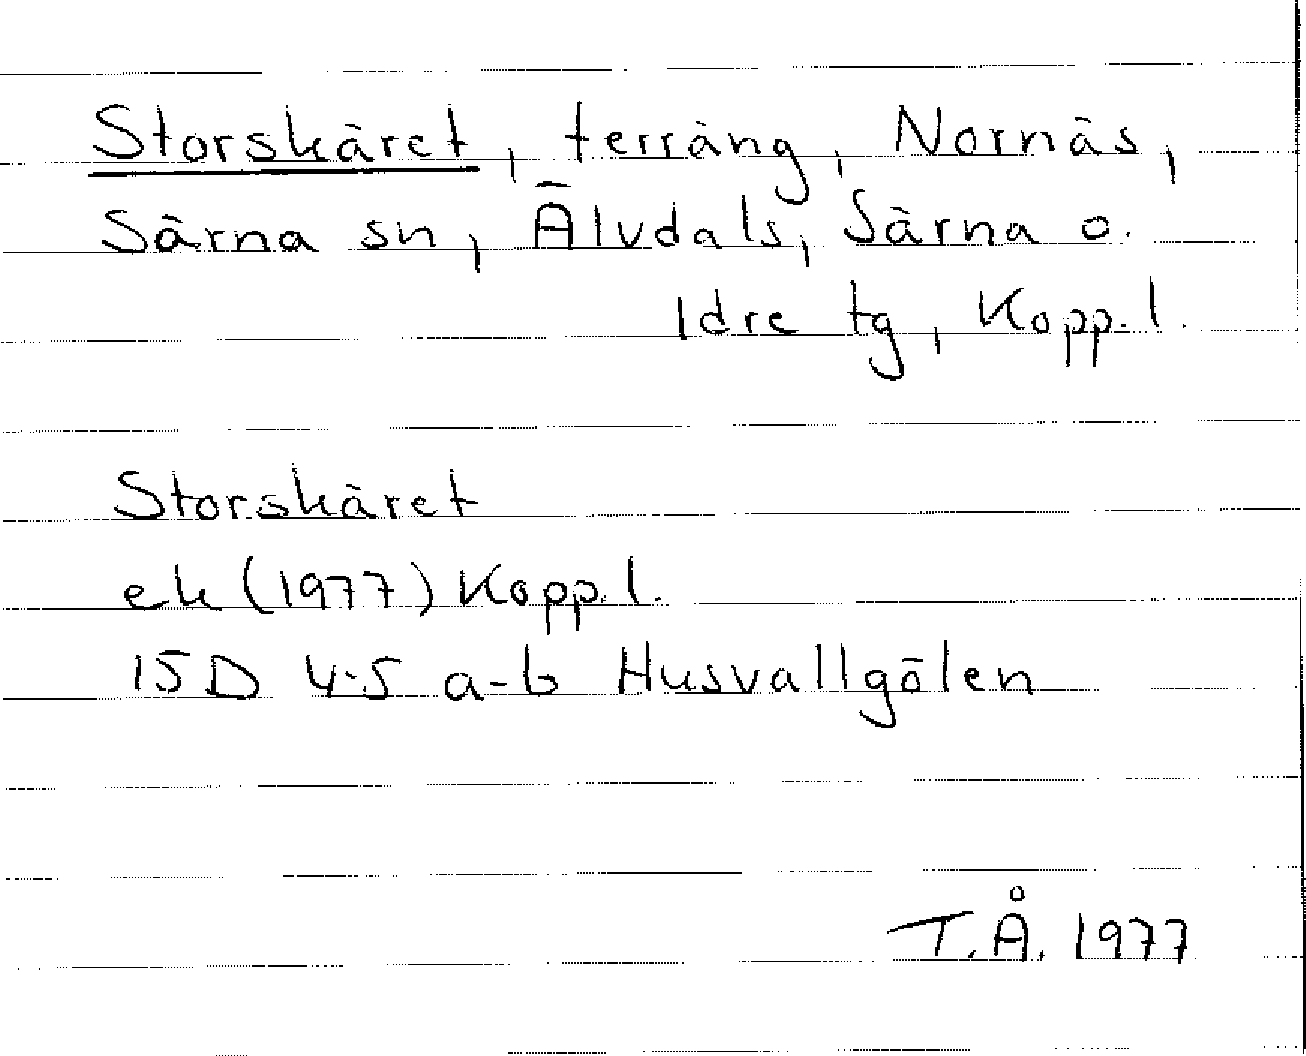 Storskäret, terräng, Nornäs,
Särna sn, Älvdals, Särna o.
Idre tg, Kopp. l.
Storskäret
ek (1977) Kopp. l.
15D 4-5 a-b Husvallgölen
T.Å. 1977